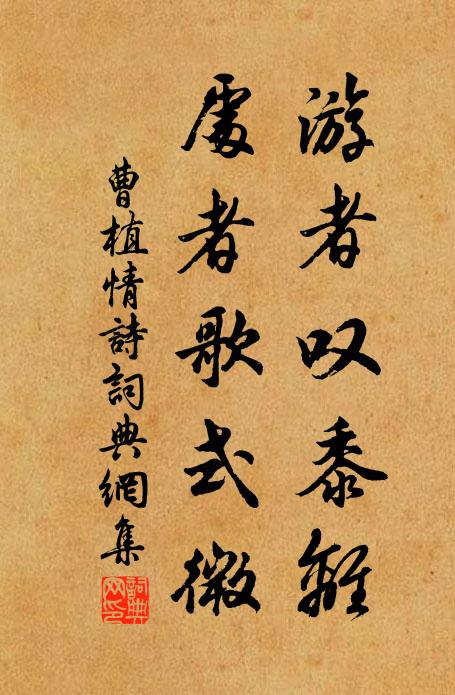 游者叹黍離
處者歌式微
曹植情詩詞典網集
詞典网印